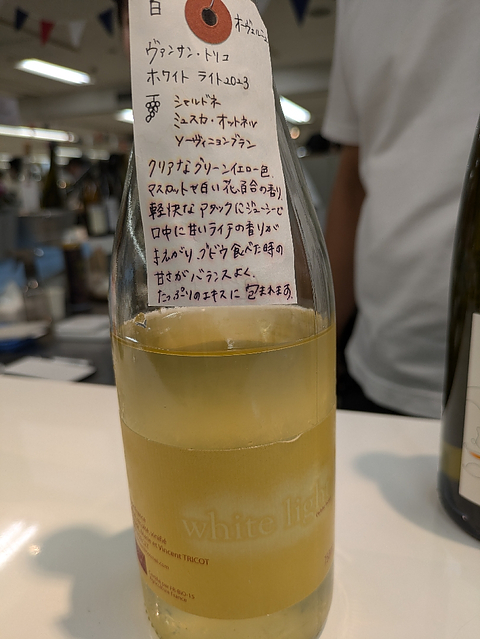 白
オーヴェルニュ
ヴァンサン・トリコ
ホワイト ライト2023
シャルドネ
ミュスカ・オットネル
ソーヴィニョンブラン
クリアなグリーンイエロー色。
マスカットや白い花、百合の香り。
軽快なアタックにジューシーで
口中に甘いライチの香りが
まわがり、ブドウ食べた時の
甘さがバランスよく、
たっぷりのエキスに包まれます。
white light
et Vincent TRICOT